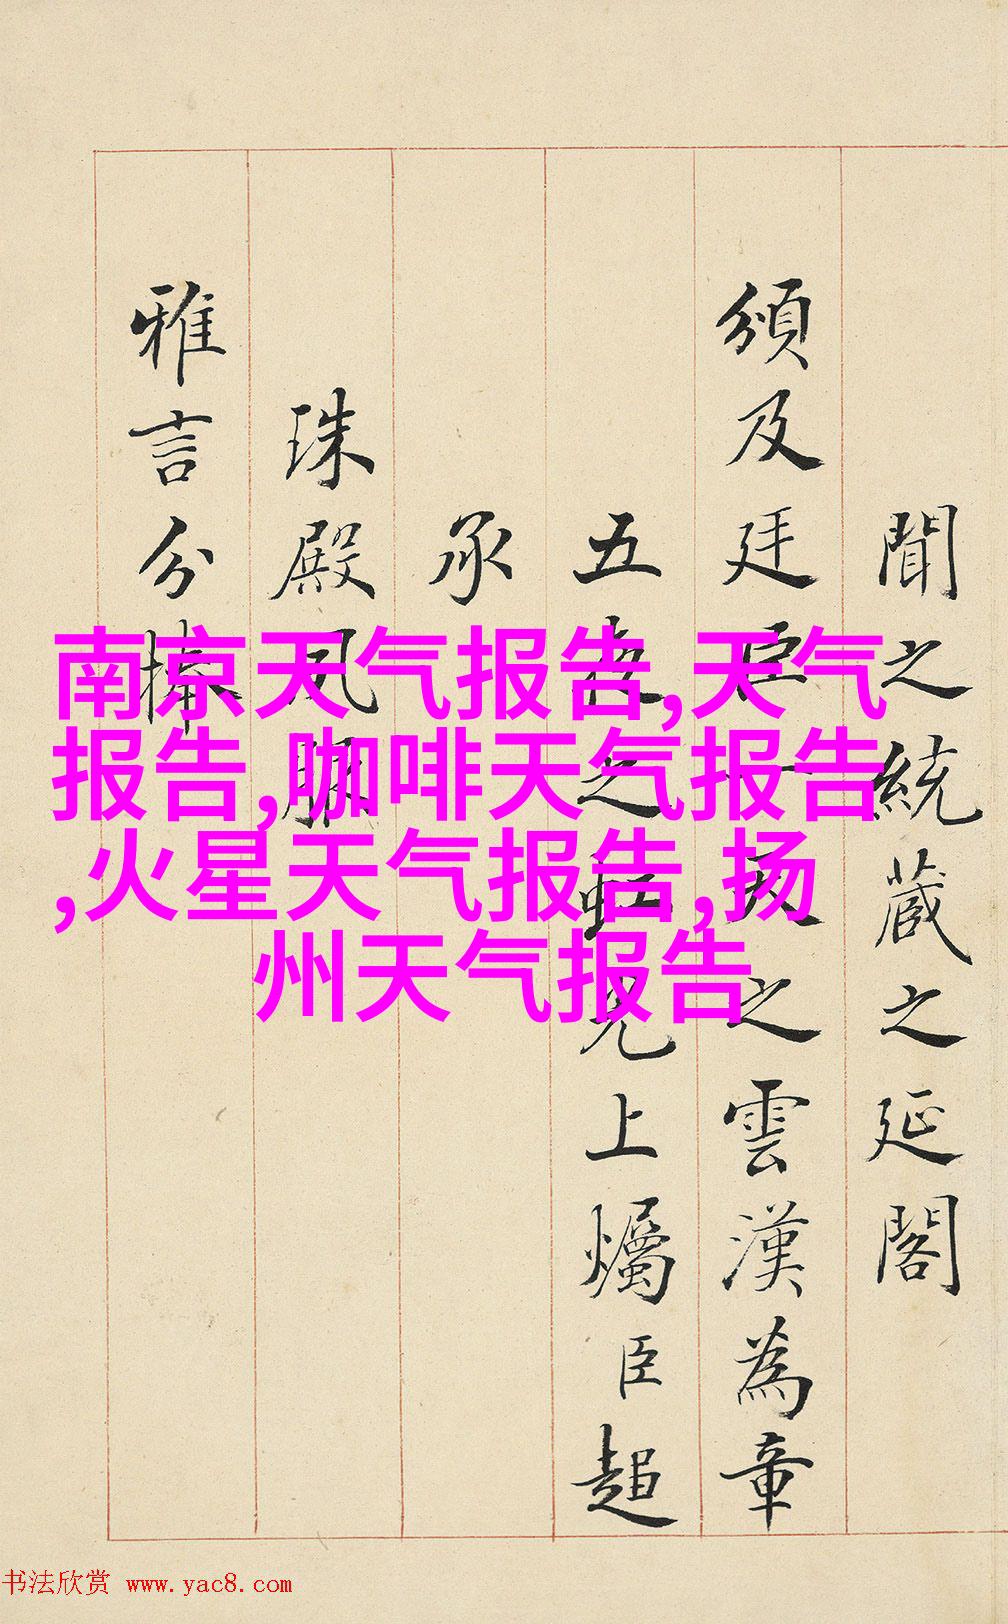 聞之統蔵之延閣
頒及廷臣一天之雲漢為章
五夜之虹光上爥臣超
承
珠殿
雅言分捧
南京天气报告,天气
报告,咖啡天气报告
,火星天气报告,扬
州天气报告
书法欣赏 www.yac8.com